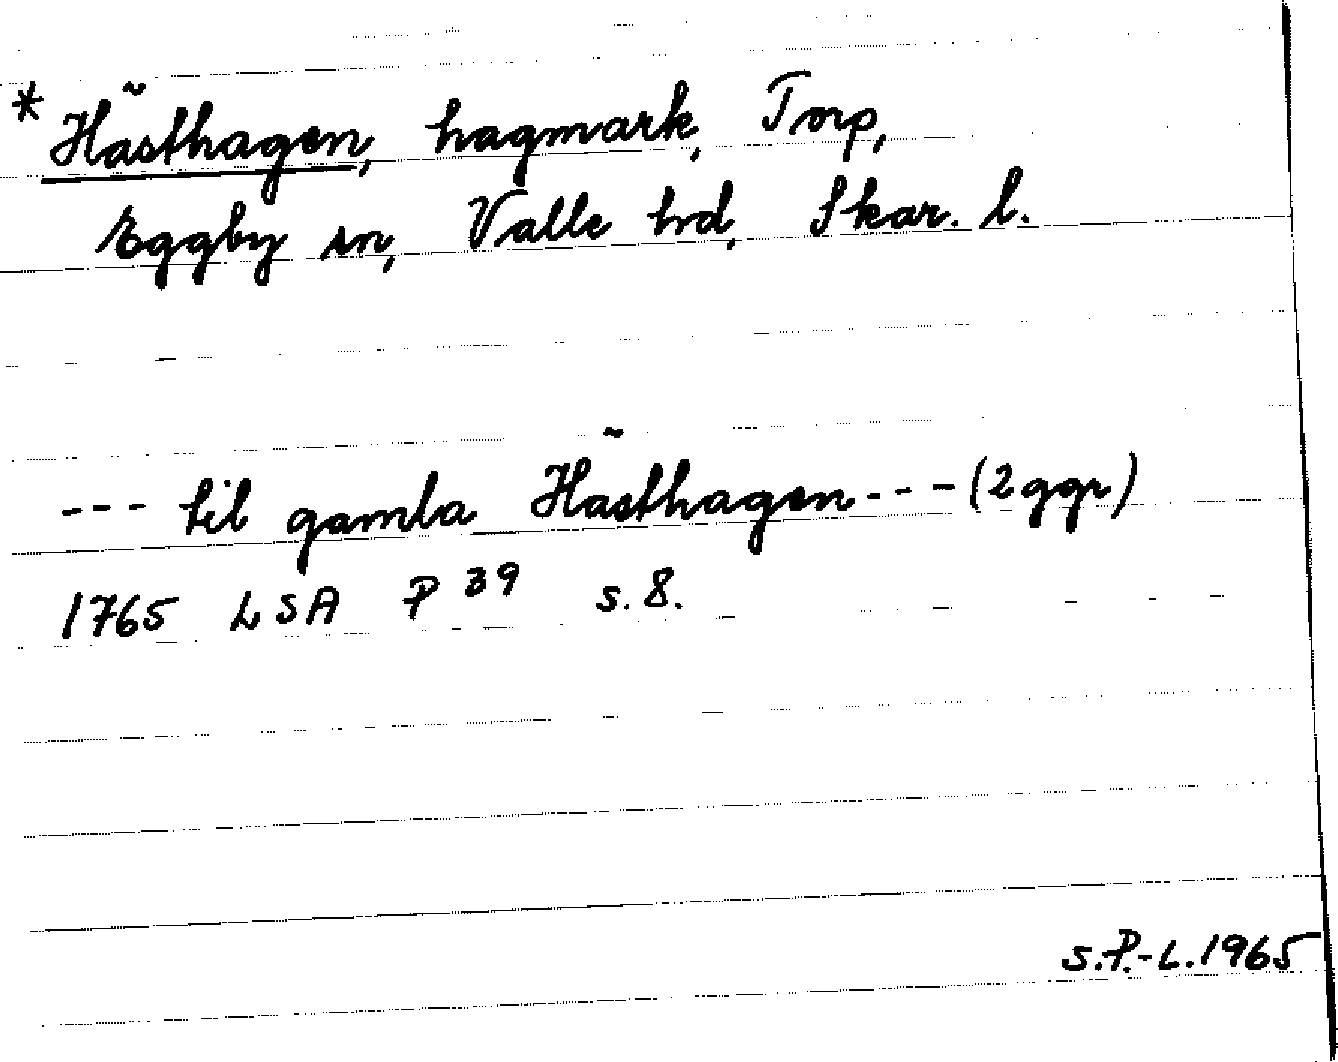 * Hästhagen, hagmark, Torp,
Eggby sn, Valle hd, Skar. l.
--- til gamla Hästhagen --- (2 ggr)
1765 LSA P 39 s. 8.
S.P.-L. 1965